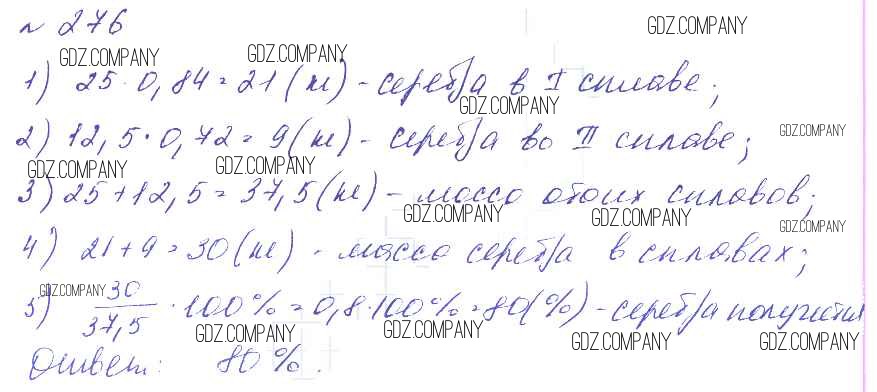 № 276
GDZ.COMPANY
GDZ.COMPANY GDZ.COMPANY
1) 25 · 0,84 = 21 (кг) - серебра в I сплаве;
GDZ.COMPANY
2) 12,5 · 0,72 = 9 (кг) - серебра во II сплаве;
GDZ.COMPANY
GDZ.COMPANY GDZ.COMPANY
3) 25 + 12,5 = 37,5 (кг) - масса обоих сплавов;
GDZ.COMPANY GDZ.COMPANY GDZ.COMPANY
4) 21 + 9 = 30 (кг) - масса серебра в сплавах;
GDZ.COMPANY
5) 30/37,5 · 100% = 0,8 · 100% = 80 (%) - серебра получится
GDZ.COMPANY GDZ.COMPANY GDZ.COMPANY GDZ.COMPANY
Ответ: 80%.